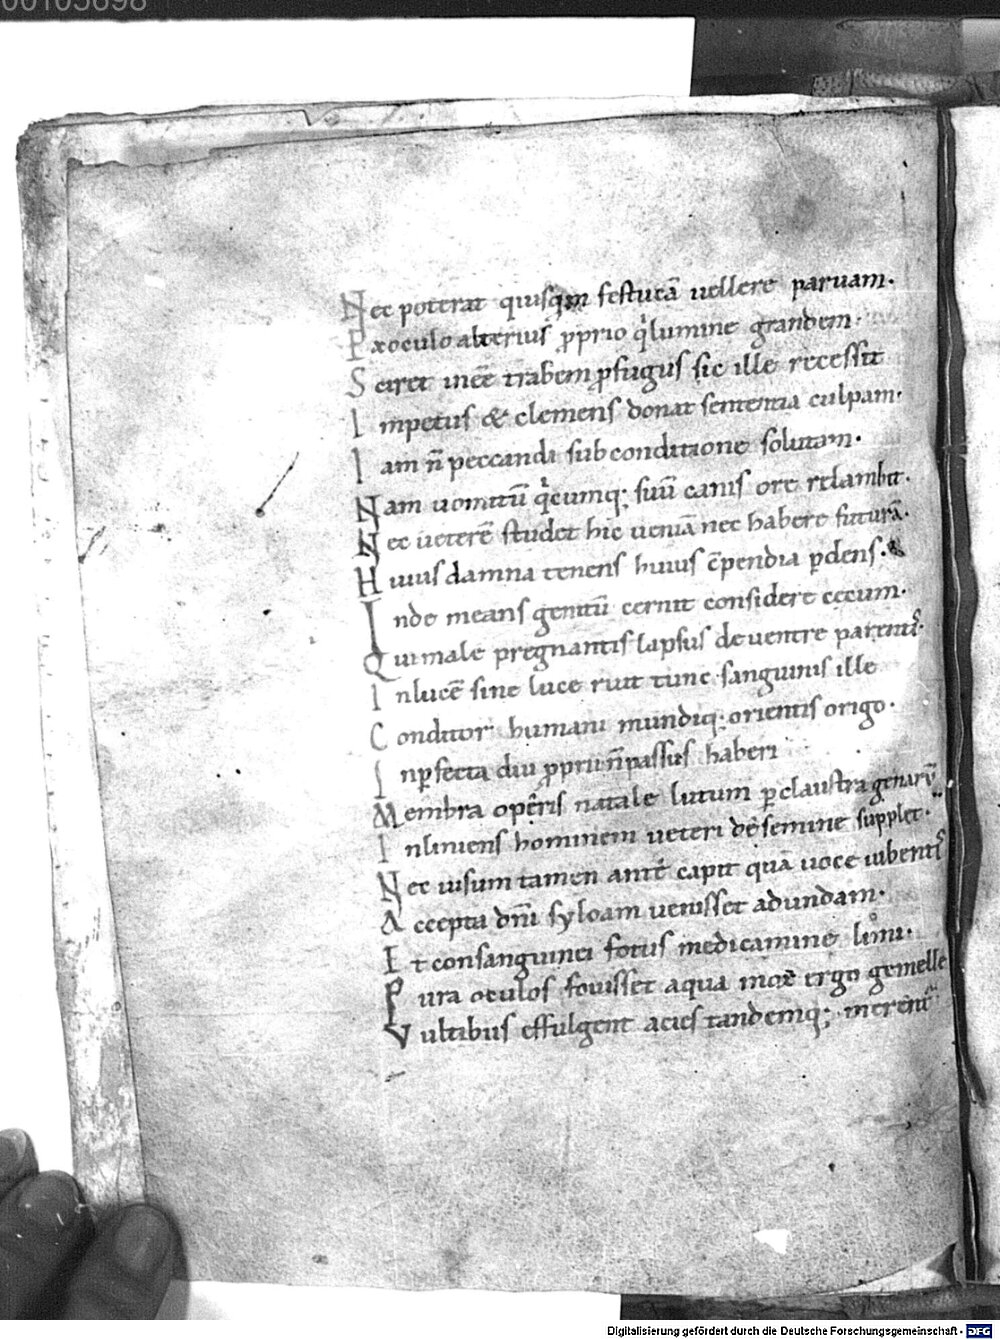 00105698
Nec poterat quisqm festucā uellere paruam.
Exoculo alterius pprio q lumine grandem
Sciret inee trabem pfugus sic ille recessit
Impetus & clemens donat sententia culpam.
Iam n̄ peccandi sub conditione solutam.
Nam uomitū qcumq; suū canis ore relambit.
Nec ueterē studet hic ueniā nec habere futurā.
Huius damna tenens huius c̄pendia pdens.
Inde means genitū cernit considere cecum.
Qui male pregnantis lapsus deuentre parentis
Inlucē sine luce ruit tunc sanguinis ille
Conditor humani mundiq; orientis origo.
Inpfecta diu pprii n̄ passus haberi
Membra opēris natale lutum pclaustra genarū
Inliniens hominem ueteri de semine supplet.
Nec uisum tamen ante capit quā uoce iubentis
Accepta dn̄i syloam uenisset adundam.
Et consanguinei fotus medicamine limi.
Pura oculos fouisset aqua mox ergo gemelle
Vultibus effulgent acies tandemq; merent
Digitalisierung gefördert durch die Deutsche Forschungsgemeinschaft - DFG